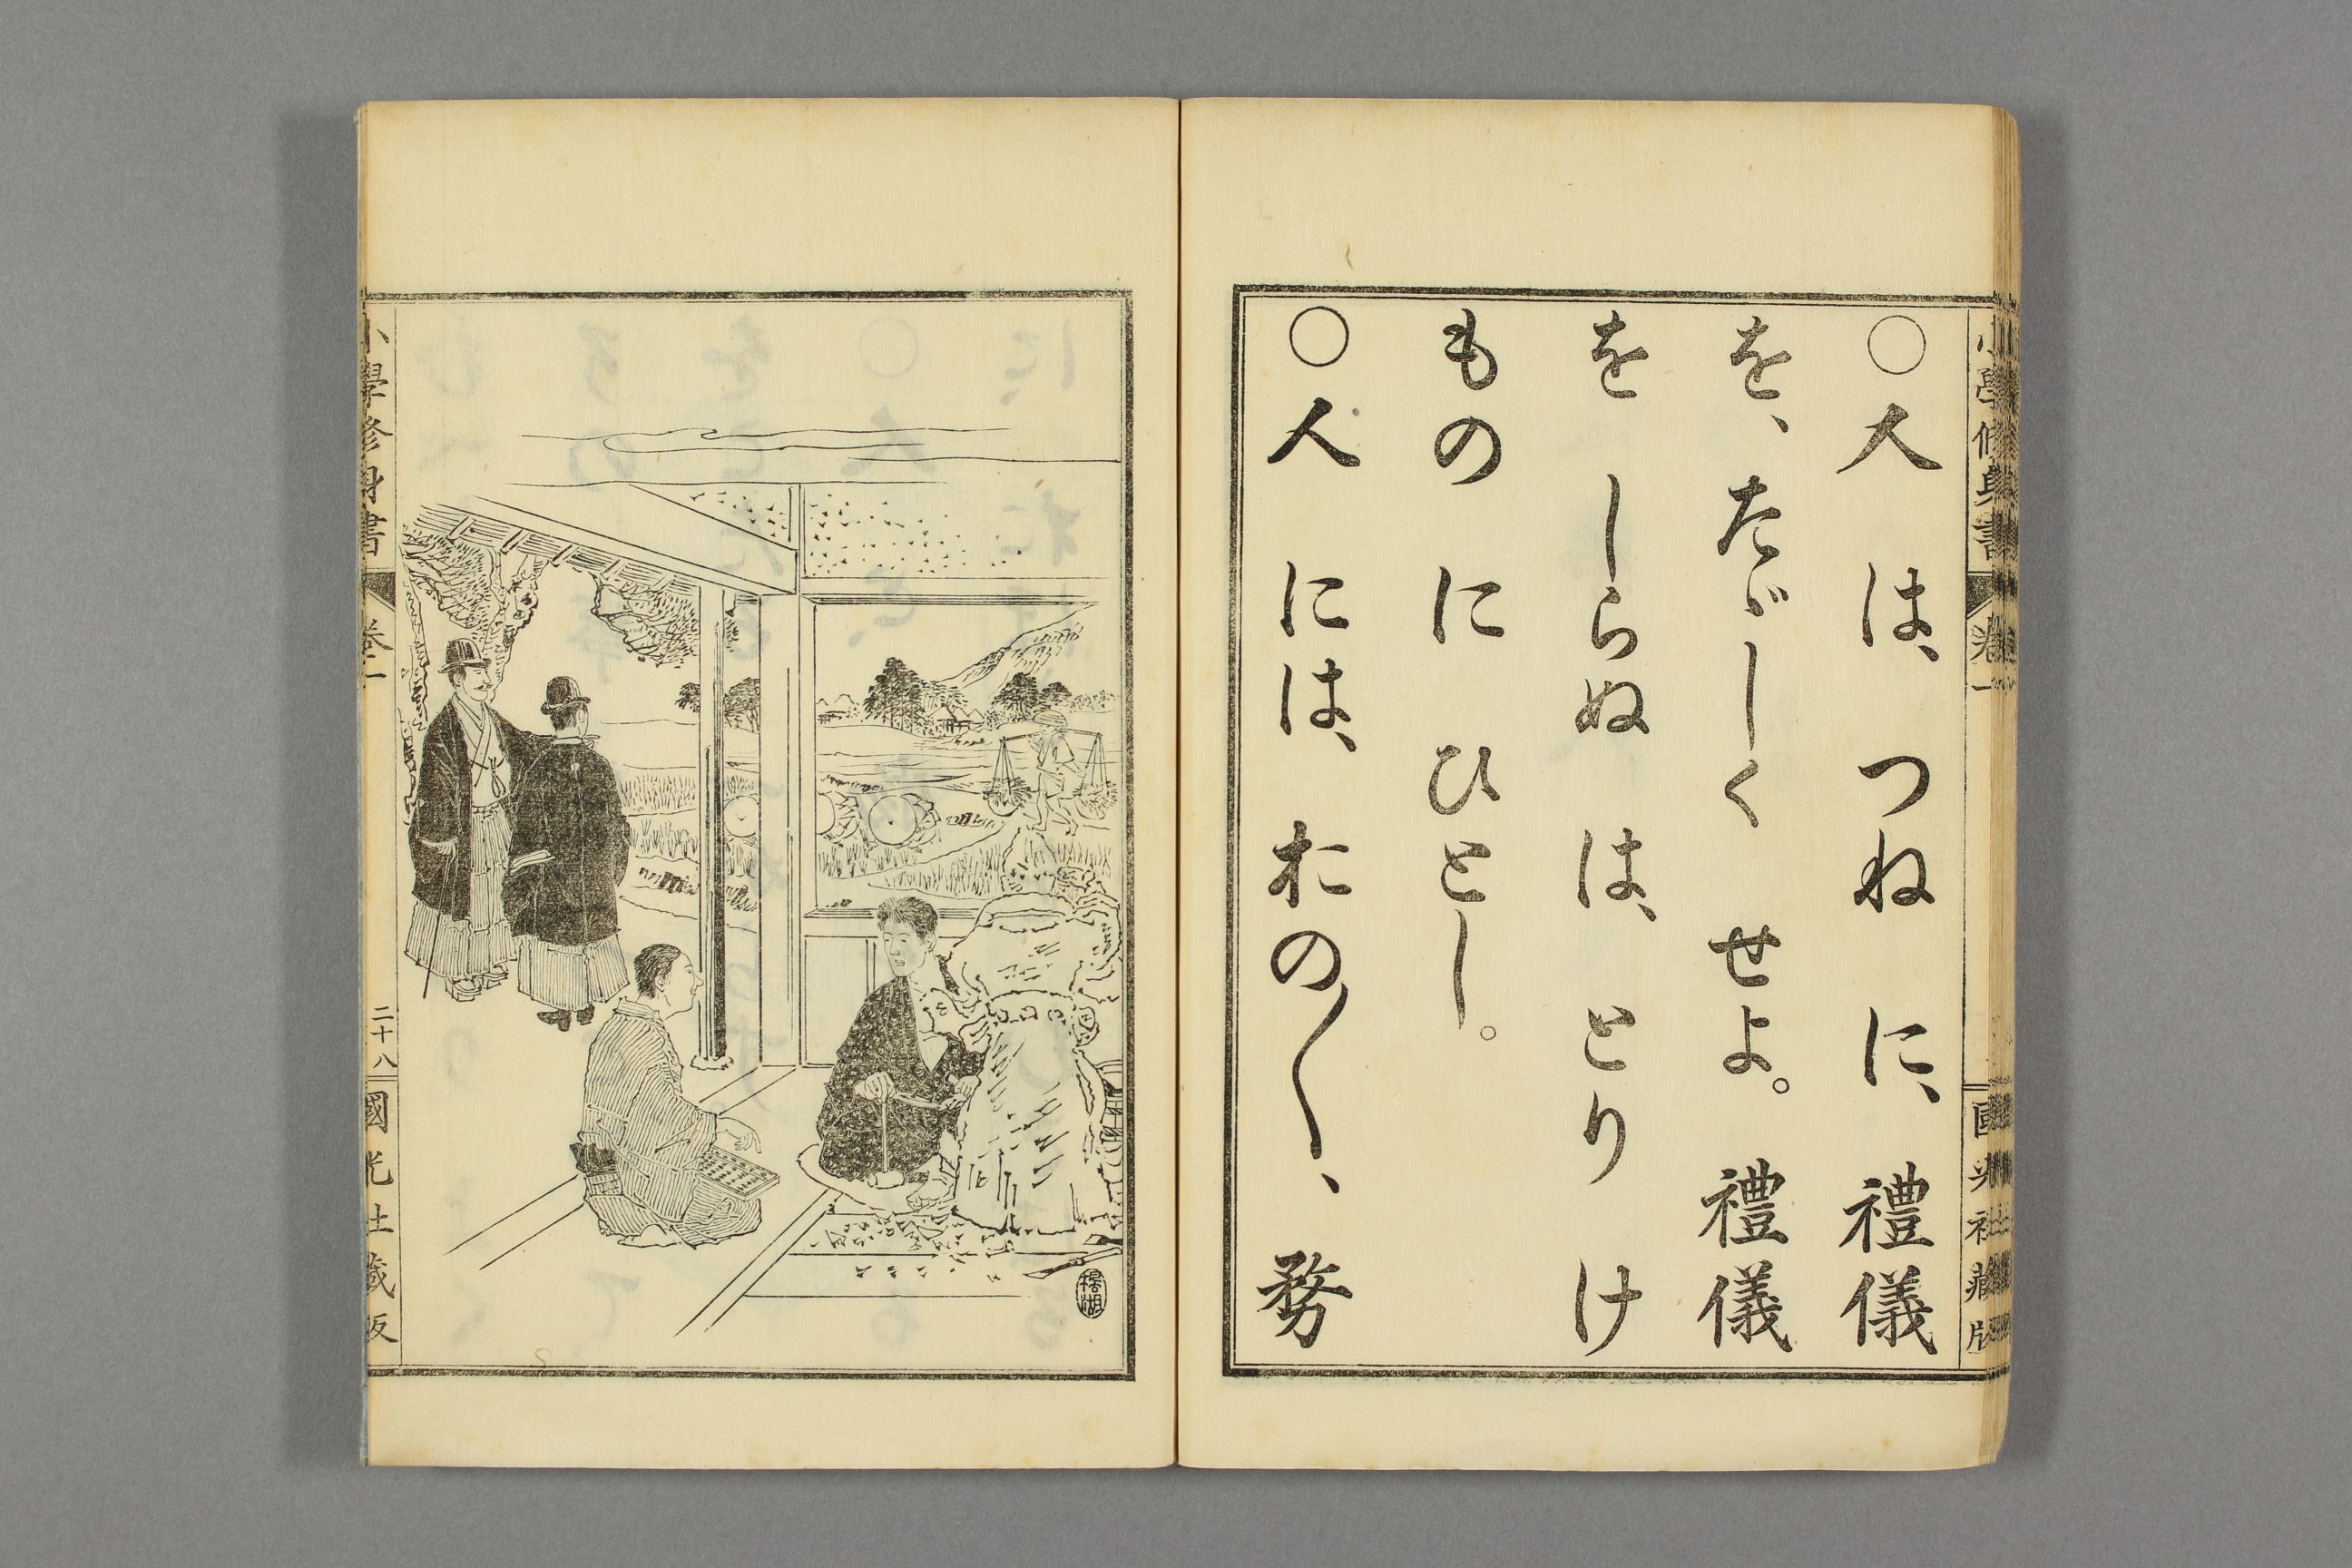 小學修身書 卷一 國光社藏版
○人 は、 つね に、 禮儀
を、 たゞしく せよ。 禮儀
を しらぬ は、 とり け
もの に ひとし。
○人 には、 おの〱、 務
小學修身書 卷一 二十八 國光社藏版